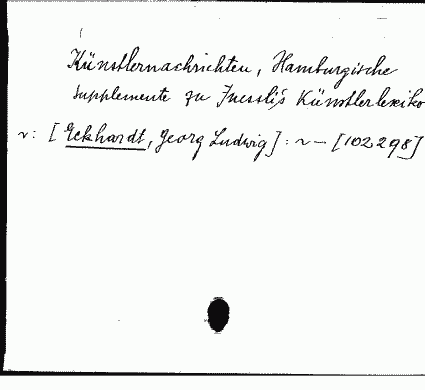 Künstlernachrichten, Hamburgische
Supplemente zu Fuessli's Künstlerlexiko
v: [Eckhardt, Georg Ludwig] : ~ — [102298]